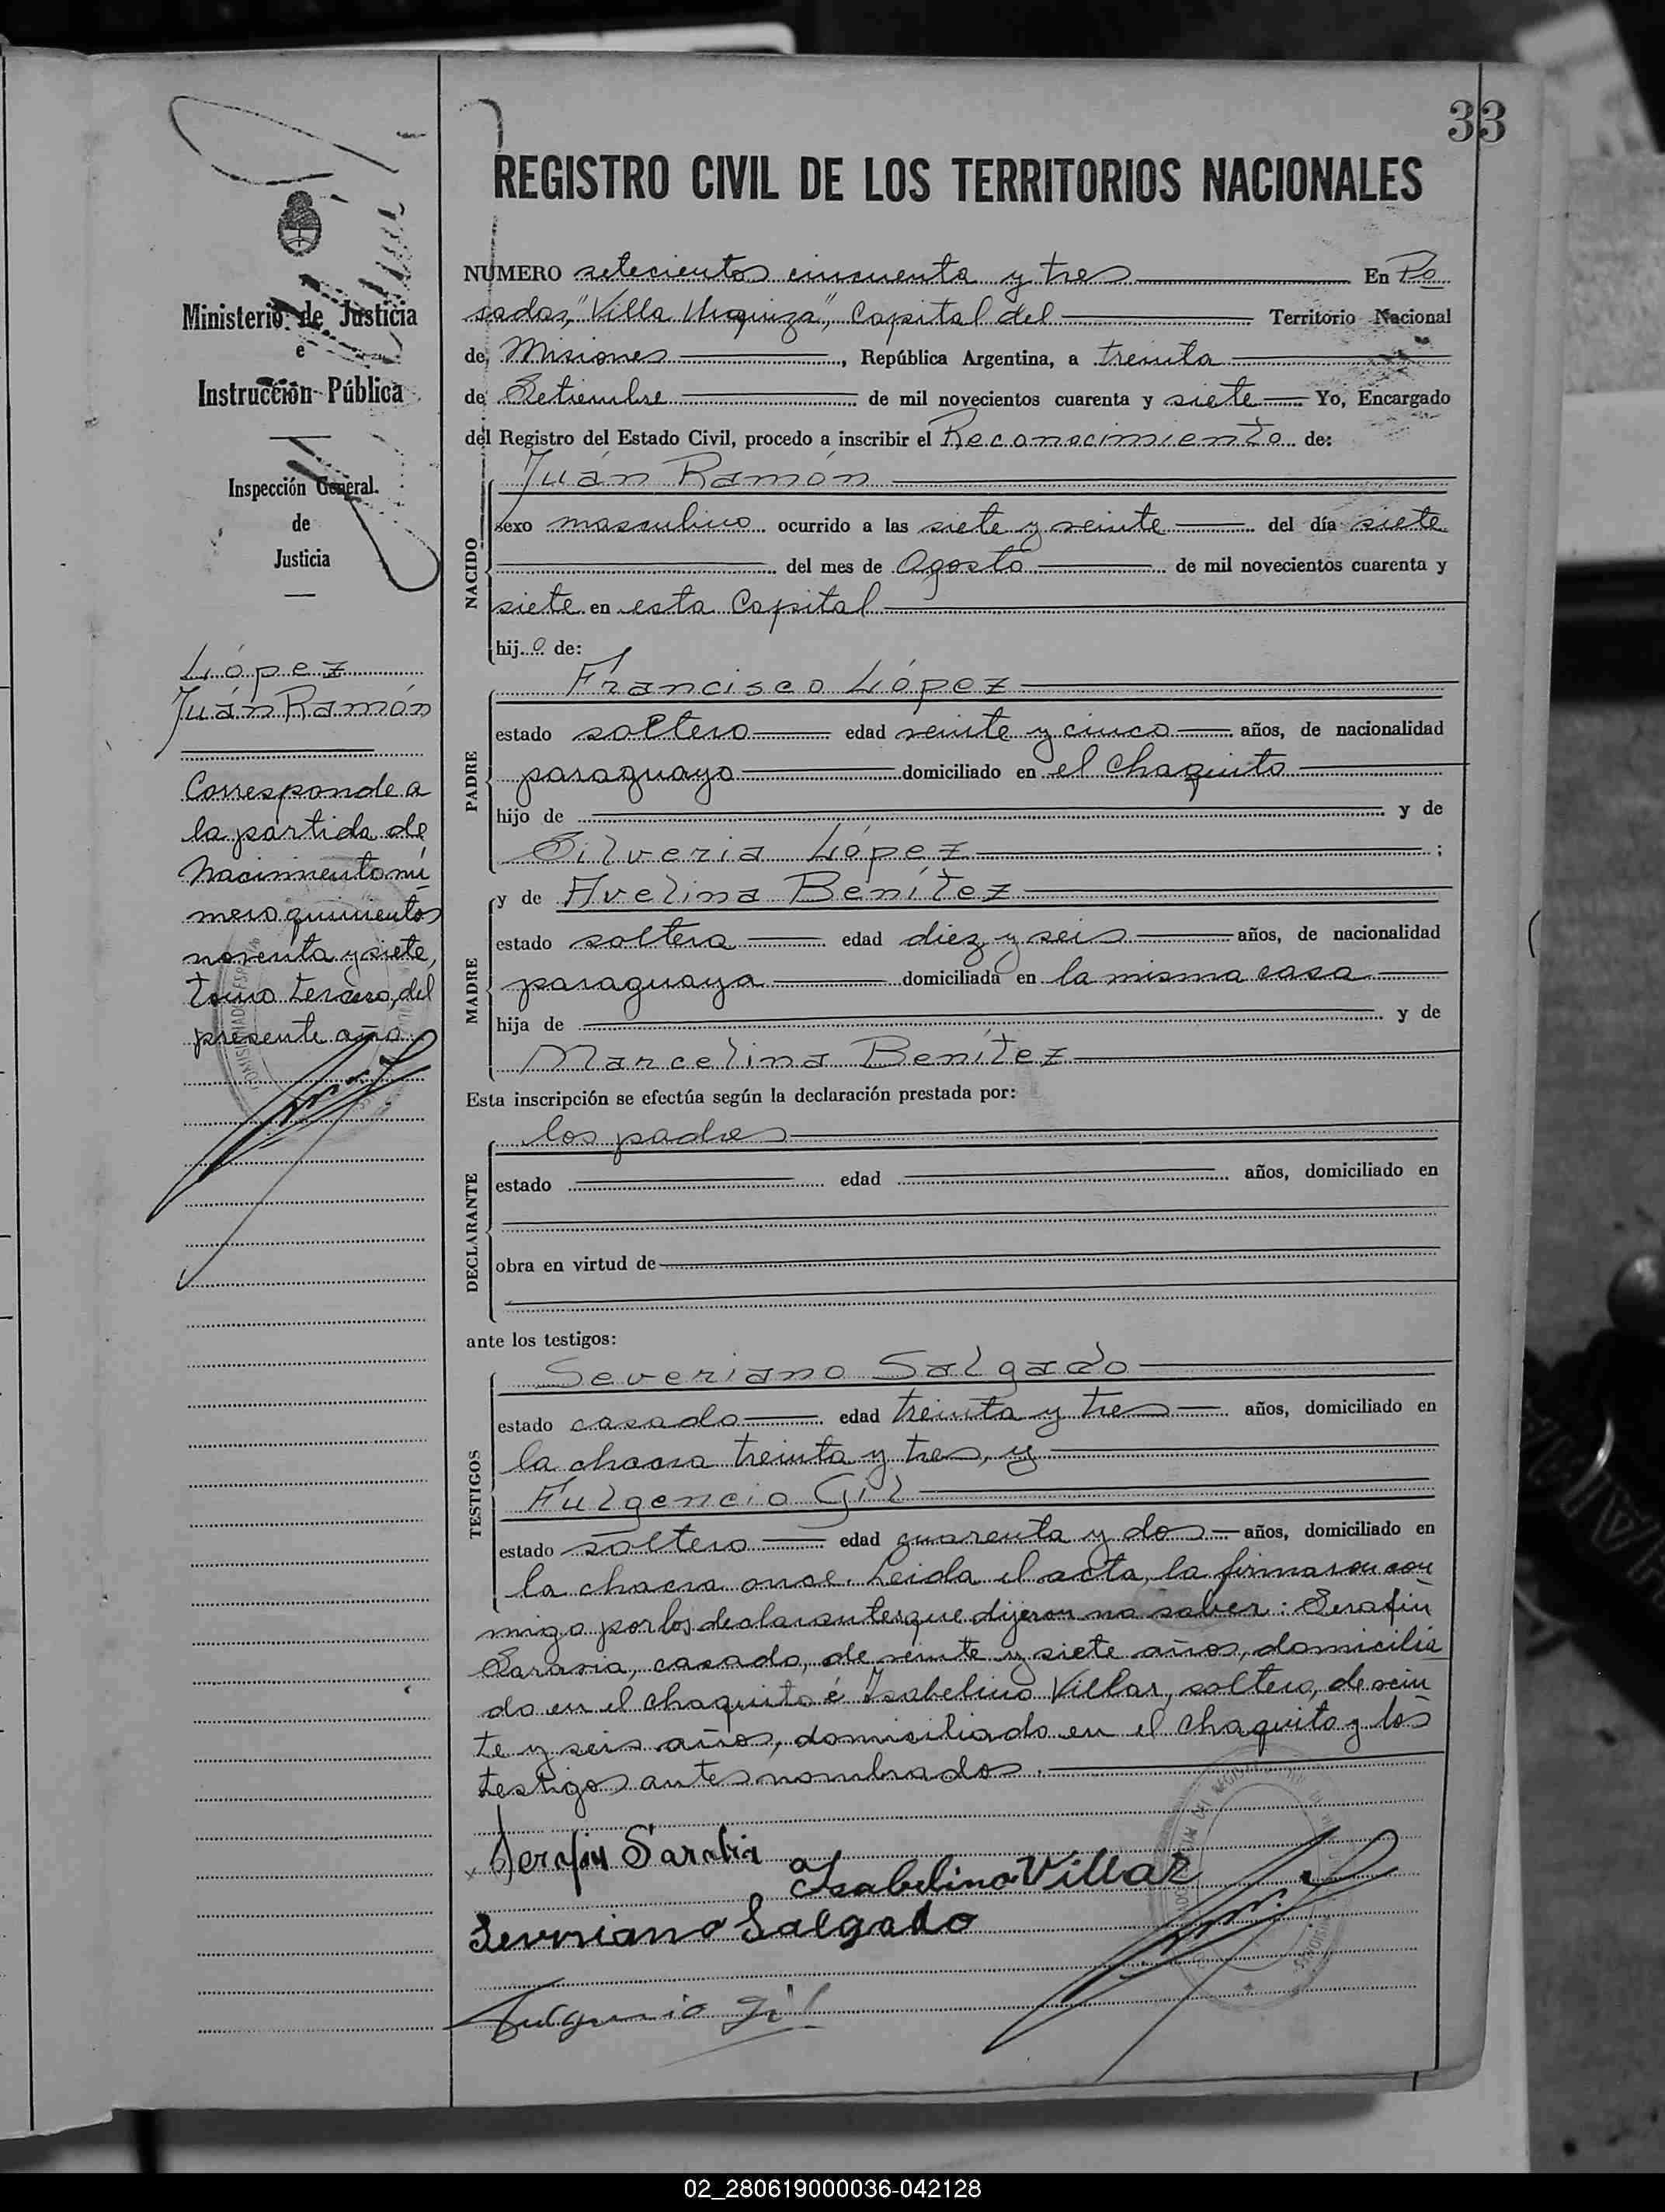 33
REGISTRO CIVIL DE LOS TERRITORIOS NACIONALES
Ministerio de Justicia
e
Instrucción Pública
Inspección General
de
Justicia
López
Juán Ramón
Corresponde a
la partida de
Nacimiento nú
mero quinientos
noventa y siete,
tomo tercero, del
presente año.
NUMERO setecientos cincuenta y tres En Po
sadas, "Villa Urquiza", Capital del Territorio Nacional
de Misiones, República Argentina, a treinta
de Setiembre de mil novecientos cuarenta y siete Yo, Encargado
del Registro del Estado Civil, procedo a inscribir el Reconocimiento de:
NACIDO
Juán Ramón
sexo masculino ocurrido a las siete y veinte del día siete
del mes de Agosto de mil novecientos cuarenta y
siete en esta Capital
hijo de:
PADRE
Francisco López
estado soltero edad veinte y cinco años, de nacionalidad
paraguayo domiciliado en el Chaquito
hijo de y de
Silveria López;
MADRE
y de Avelina Benítez
estado soltera edad diez y seis años, de nacionalidad
paraguaya domiciliada en la misma casa
hija de y de
Marcelina Benítez
Esta inscripción se efectúa según la declaración prestada por:
DECLARANTE
los padres
estado edad años, domiciliado en
obra en virtud de
ante los testigos:
TESTIGOS
Severiano Salgado
estado casado edad treinta y tres años, domiciliado en
la chacra treinta y tres, y
Fulgencio Gil
estado soltero edad cuarenta y dos años, domiciliado en
la chacra once. Leida el acta, la firmaron con
migo por los declarantes que dijeron no saber: Serafín
Sarasia, casado, de veinte y siete años, domicilia
do en el chaquito é Isabelino Villar, soltero, de vein
te y seis años, domiciliado en el chaquito y los
testigos antes nombrados.
Serafin Sarabia
Isabelino Villar
Severiano Salgado
Fulgencio Gil
02_280619000036-042128